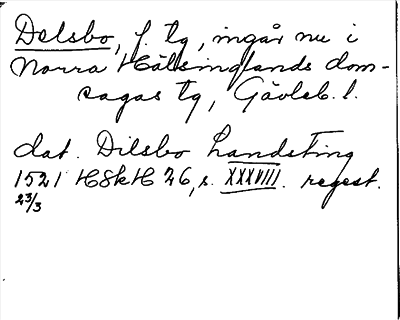 Delsbo, f. tg, ingår nu i
Norra Hälsinglands dom-
sagas tg, Gävleb. l.
dat. Dilsbo landsting
1521 HSkH 26, s. XXXVIII. regest.
23/3